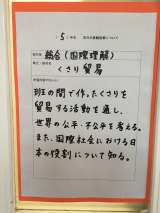 5
総合(国際理解)
くさり貿易
班の間で作ったくさりを
貿易する活動を通し、
世界の公平・不公平を考える。
また、国際社会における日
本の役割について知る。